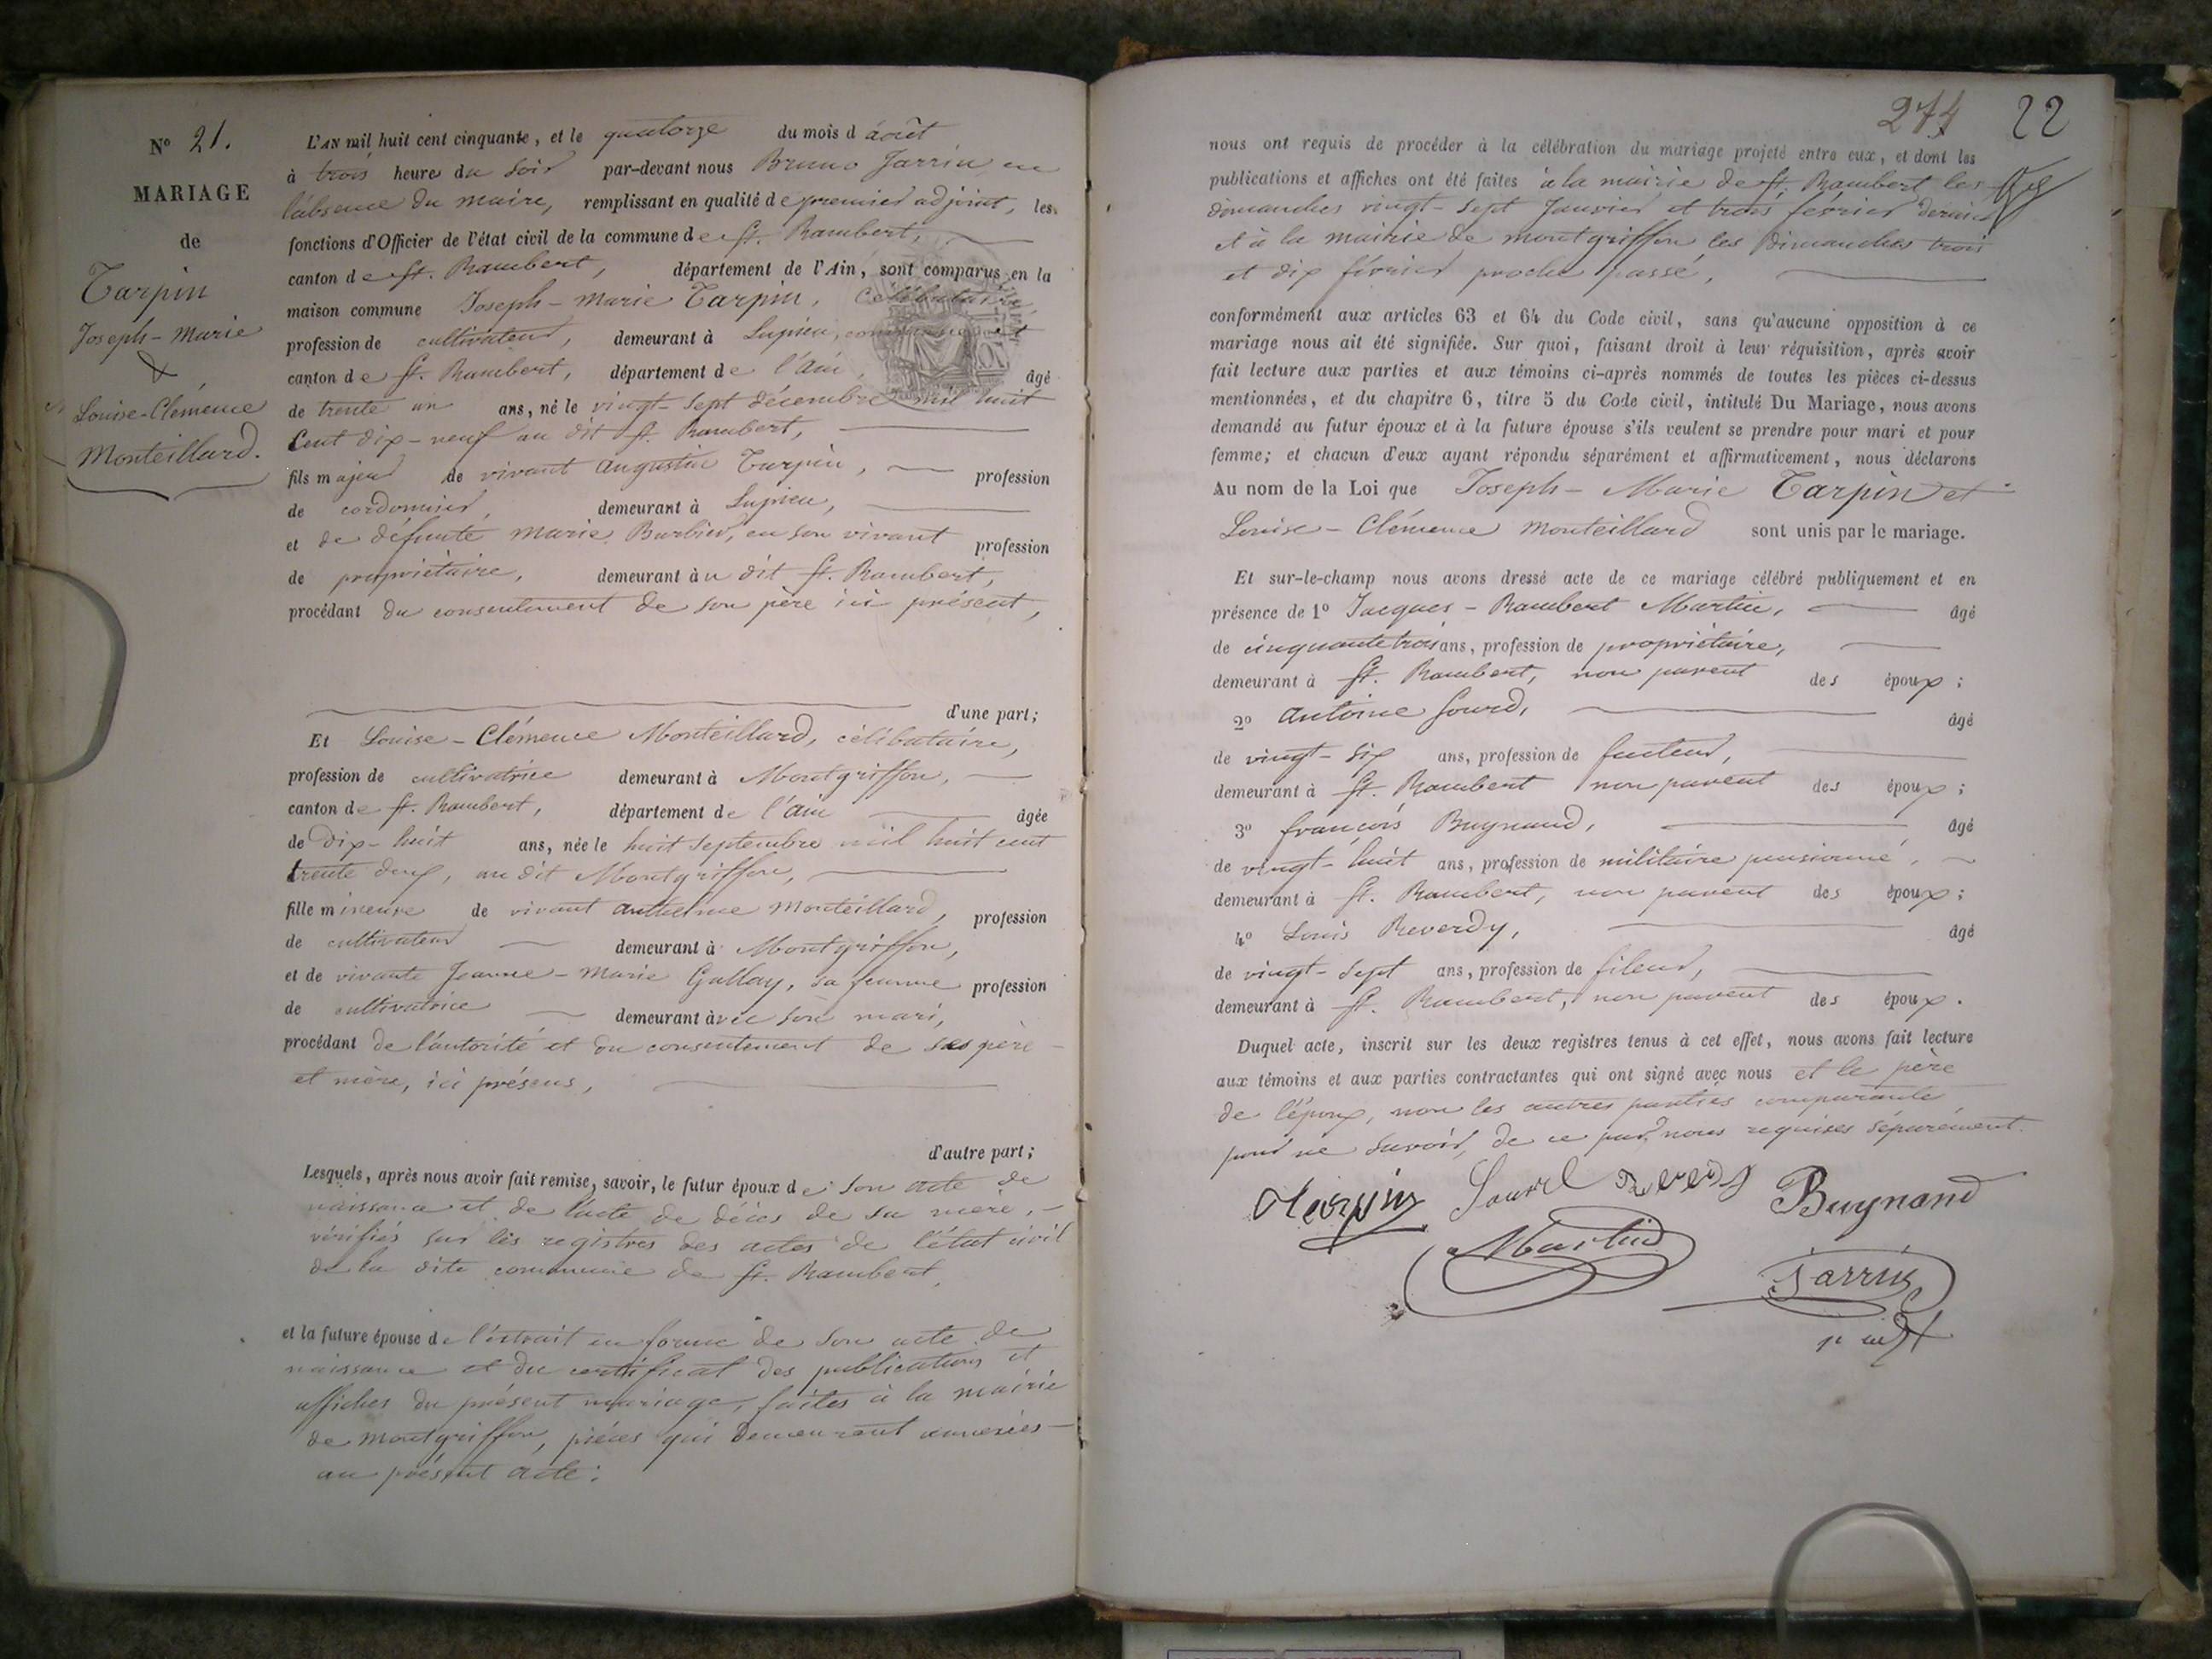 N° 21.
MARIAGE
de
Tarpin
Joseph-Marie
&
Louise-Clémence
Monteillard.
L'AN mil huit cent cinquante, et le quatorze du mois d août
à trois heures du soir par-devant nous Bruno Jarrin en
l'absence du maire, remplissant en qualité de premier adjoint, les
fonctions d'Officier de l'état civil de la commune de St. Rambert,
canton de St. Rambert, département de l'Ain, sont comparus en la
maison commune Joseph-Marie Tarpin, Célibataire,
profession de cultivateur, demeurant à Lupieu,
canton de St. Rambert, département de l'Ain, âgé
de trente un ans, né le vingt-sept décembre mil huit
Cent dix-neuf au dit St. Rambert,
fils majeur de vivant Augustin Tarpin, profession
de cordonnier, demeurant à Lupieu,
et de défunte Marie Barbier, en son vivant profession
de propriétaire, demeurant au dit St. Rambert,
procédant du consentement de son père ici présent,
d'une part;
Et Louise-Clémence Monteillard, célibataire,
profession de cultivatrice demeurant à Montgriffon,
canton de St. Rambert, département de l'Ain âgée
de dix-huit ans, née le huit Septembre mil huit cent
trente deux, au dit Montgriffon,
fille mineure de vivant Anthelme Monteillard, profession
de cultivateur demeurant à Montgriffon,
et de vivante Jeanne-Marie Gallay, sa femme profession
de cultivatrice demeurant avec son mari,
procédant de l'autorité et du consentement de ses père
et mère, ici présens,
d'autre part;
Lesquels, après nous avoir fait remise, savoir, le futur époux de son acte de
naissance et de l'acte de décès de sa mère,
vérifiés sur les registres des actes de l'état civil
de la dite commune de St. Rambert,
et la future épouse de l'extrait en forme de son acte de
naissance et du certificat des publications et
affiches du présent mariage, faites à la mairie
de Montgriffon, pièces qui demeurent annexées
au présent acte;
274 22
nous ont requis de procéder à la célébration du mariage projeté entre eux, et dont les
publications et affiches ont été faites à la mairie de St. Rambert les
dimanches vingt-sept Janvier et trois février dernier
et à la mairie de Montgriffon les Dimanches trois
et dix février proche passé,
conformément aux articles 63 et 64 du Code civil, sans qu'aucune opposition à ce
mariage nous ait été signifiée. Sur quoi, faisant droit à leur réquisition, après avoir
fait lecture aux parties et aux témoins ci-après nommés de toutes les pièces ci-dessus
mentionnées, et du chapitre 6, titre 5 du Code civil, intitulé Du Mariage, nous avons
demandé au futur époux et à la future épouse s'ils veulent se prendre pour mari et pour
femme; et chacun d'eux ayant répondu séparément et affirmativement, nous déclarons
Au nom de la Loi que Joseph-Marie Tarpin et
Louise-Clémence Monteillard sont unis par le mariage.
Et sur-le-champ nous avons dressé acte de ce mariage célébré publiquement et en
présence de 1° Jacques-Rambert Martin, âgé
de cinquante trois ans, profession de propriétaire,
demeurant à St. Rambert, non parent des époux;
2° Antoine Sourd, âgé
de vingt-six ans, profession de facteur,
demeurant à St. Rambert non parent des époux;
3° François Buynand, âgé
de vingt-huit ans, profession de militaire pensionné,
demeurant à St. Rambert, non parent des époux;
4° Louis Reverdy, âgé
de vingt-sept ans, profession de fileur,
demeurant à St. Rambert, non parent des époux.
Duquel acte, inscrit sur les deux registres tenus à cet effet, nous avons fait lecture
aux témoins et aux parties contractantes qui ont signé avec nous et le père
de l'époux, non les autres parties comparante
pour ne savoir, de ce par nous requises séparément.
Tarpin Sourd Reverdy Buynand
Martin
Jarrin